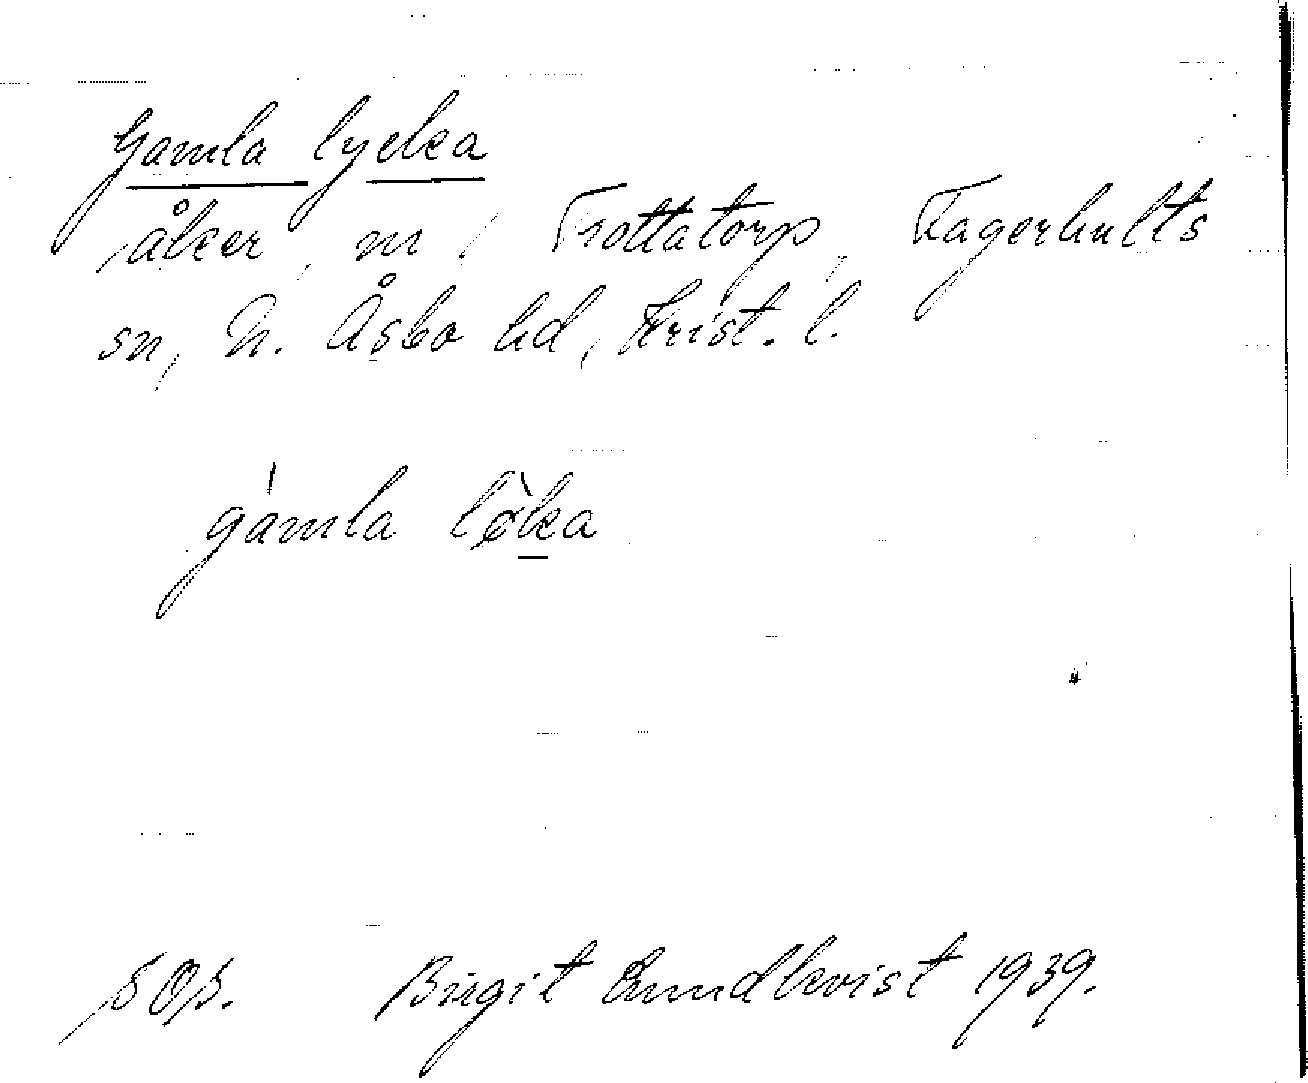 Gamla lycka
åker, m / Trottatorp, Fagerhults
sn, N. Åsbo hd, Krist. l.
gámla lø̀ka
Birgit Lundkvist 1939.